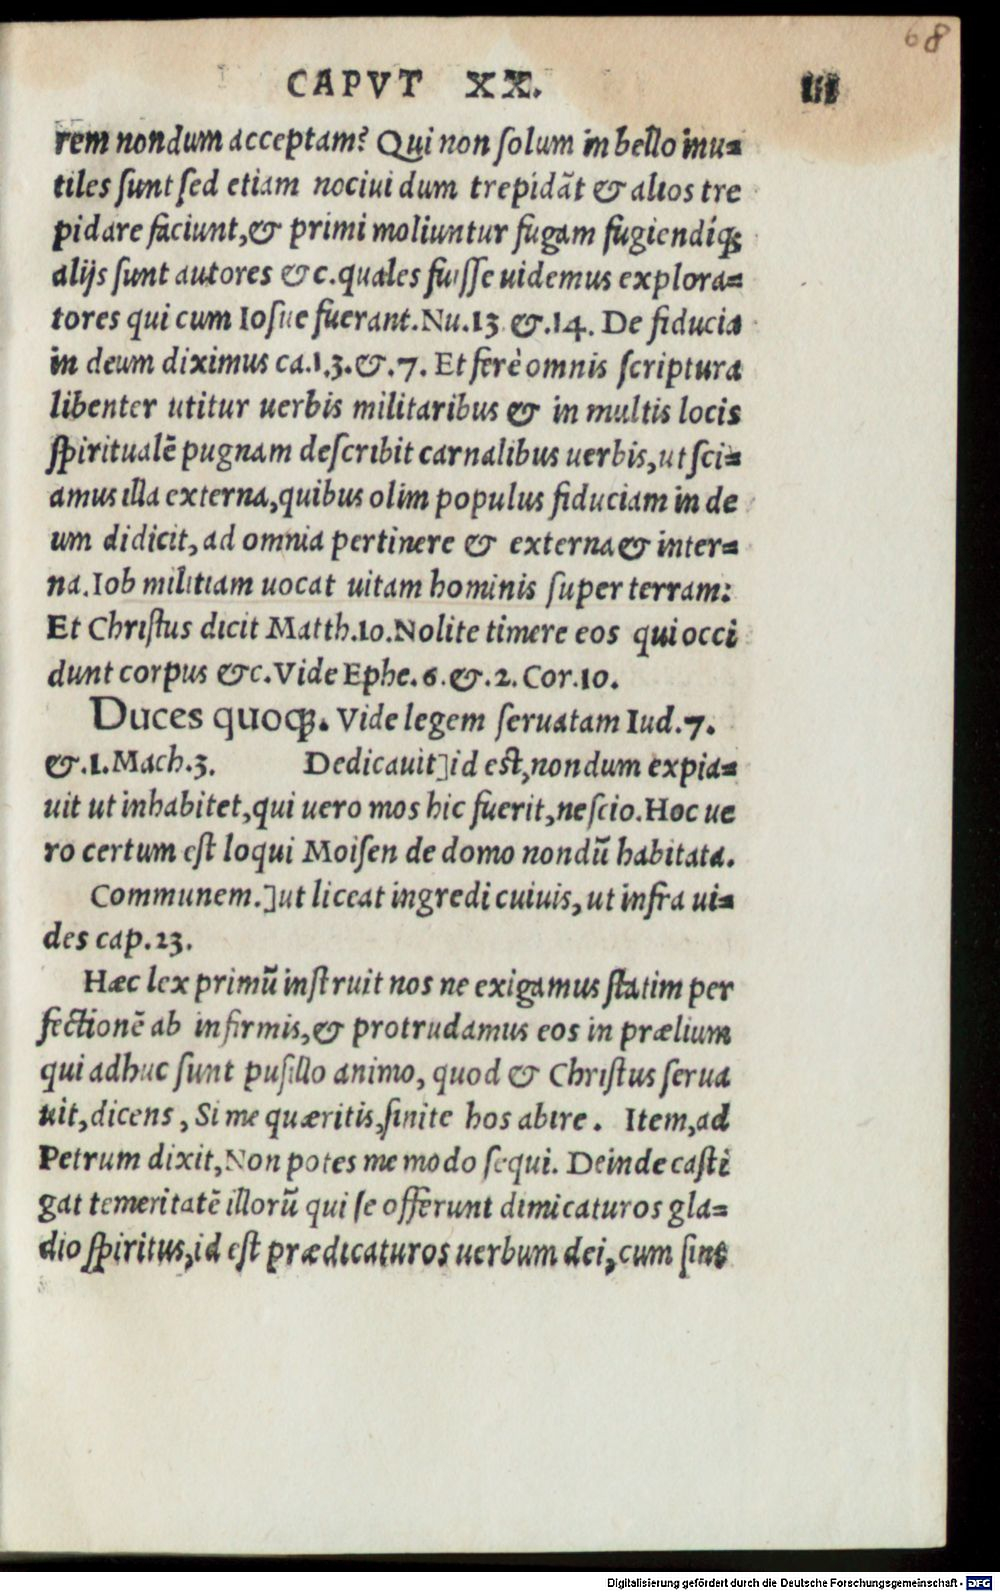 68
CAPVT XX.
rem nondum acceptam? Qui non ſolum in bello inu-
tiles ſunt ſed etiam nociui dum trepidãt & alios tre
pidare faciunt, & primi moliuntur fugam fugiendíq;
alijs ſunt autores &c. quales fuiſſe uidemus explora-
tores qui cum Ioſue fuerant. Nu.13 &.14. De fiducia
in deum diximus ca.1.3.&.7. Et ferè omnis ſcriptura
libenter utitur uerbis militaribus & in multis locis
ſpiritualẽ pugnam deſcribit carnalibus uerbis, ut ſci-
amus illa externa, quibus olim populus fiduciam in de
um didicit, ad omnia pertinere & externa & inter-
na. Iob militiam uocat uitam hominis ſuper terram:
Et Chriſtus dicit Matth.10. Nolite timere eos qui occi
dunt corpus &c. Vide Ephe.6.&.2. Cor.10.
Duces quoq;. Vide legem ſeruatam Iud.7.
&.1.Mach.3. Dedicauit] id eſt, nondum expia-
uit ut inhabitet, qui uero mos hic fuerit, neſcio. Hoc ue
ro certum eſt loqui Moiſen de domo nondũ habitata.
Communem.] ut liceat ingredi cuiuis, ut infra ui-
des cap.23.
Hæc lex primũ inſtruit nos ne exigamus ſtatim per
fectionẽ ab infirmis, & protrudamus eos in prælium
qui adhuc ſunt puſillo animo, quod & Chriſtus ſerua
uit, dicens, Si me quæritis, ſinite hos abire. Item, ad
Petrum dixit, Non potes me modo ſequi. Deinde caſti
gat temeritatẽ illorũ qui ſe offerunt dimicaturos gla-
dio ſpiritus, id eſt prædicaturos uerbum dei, cum ſint
Digitalisierung gefördert durch die Deutsche Forschungsgemeinschaft - DFG